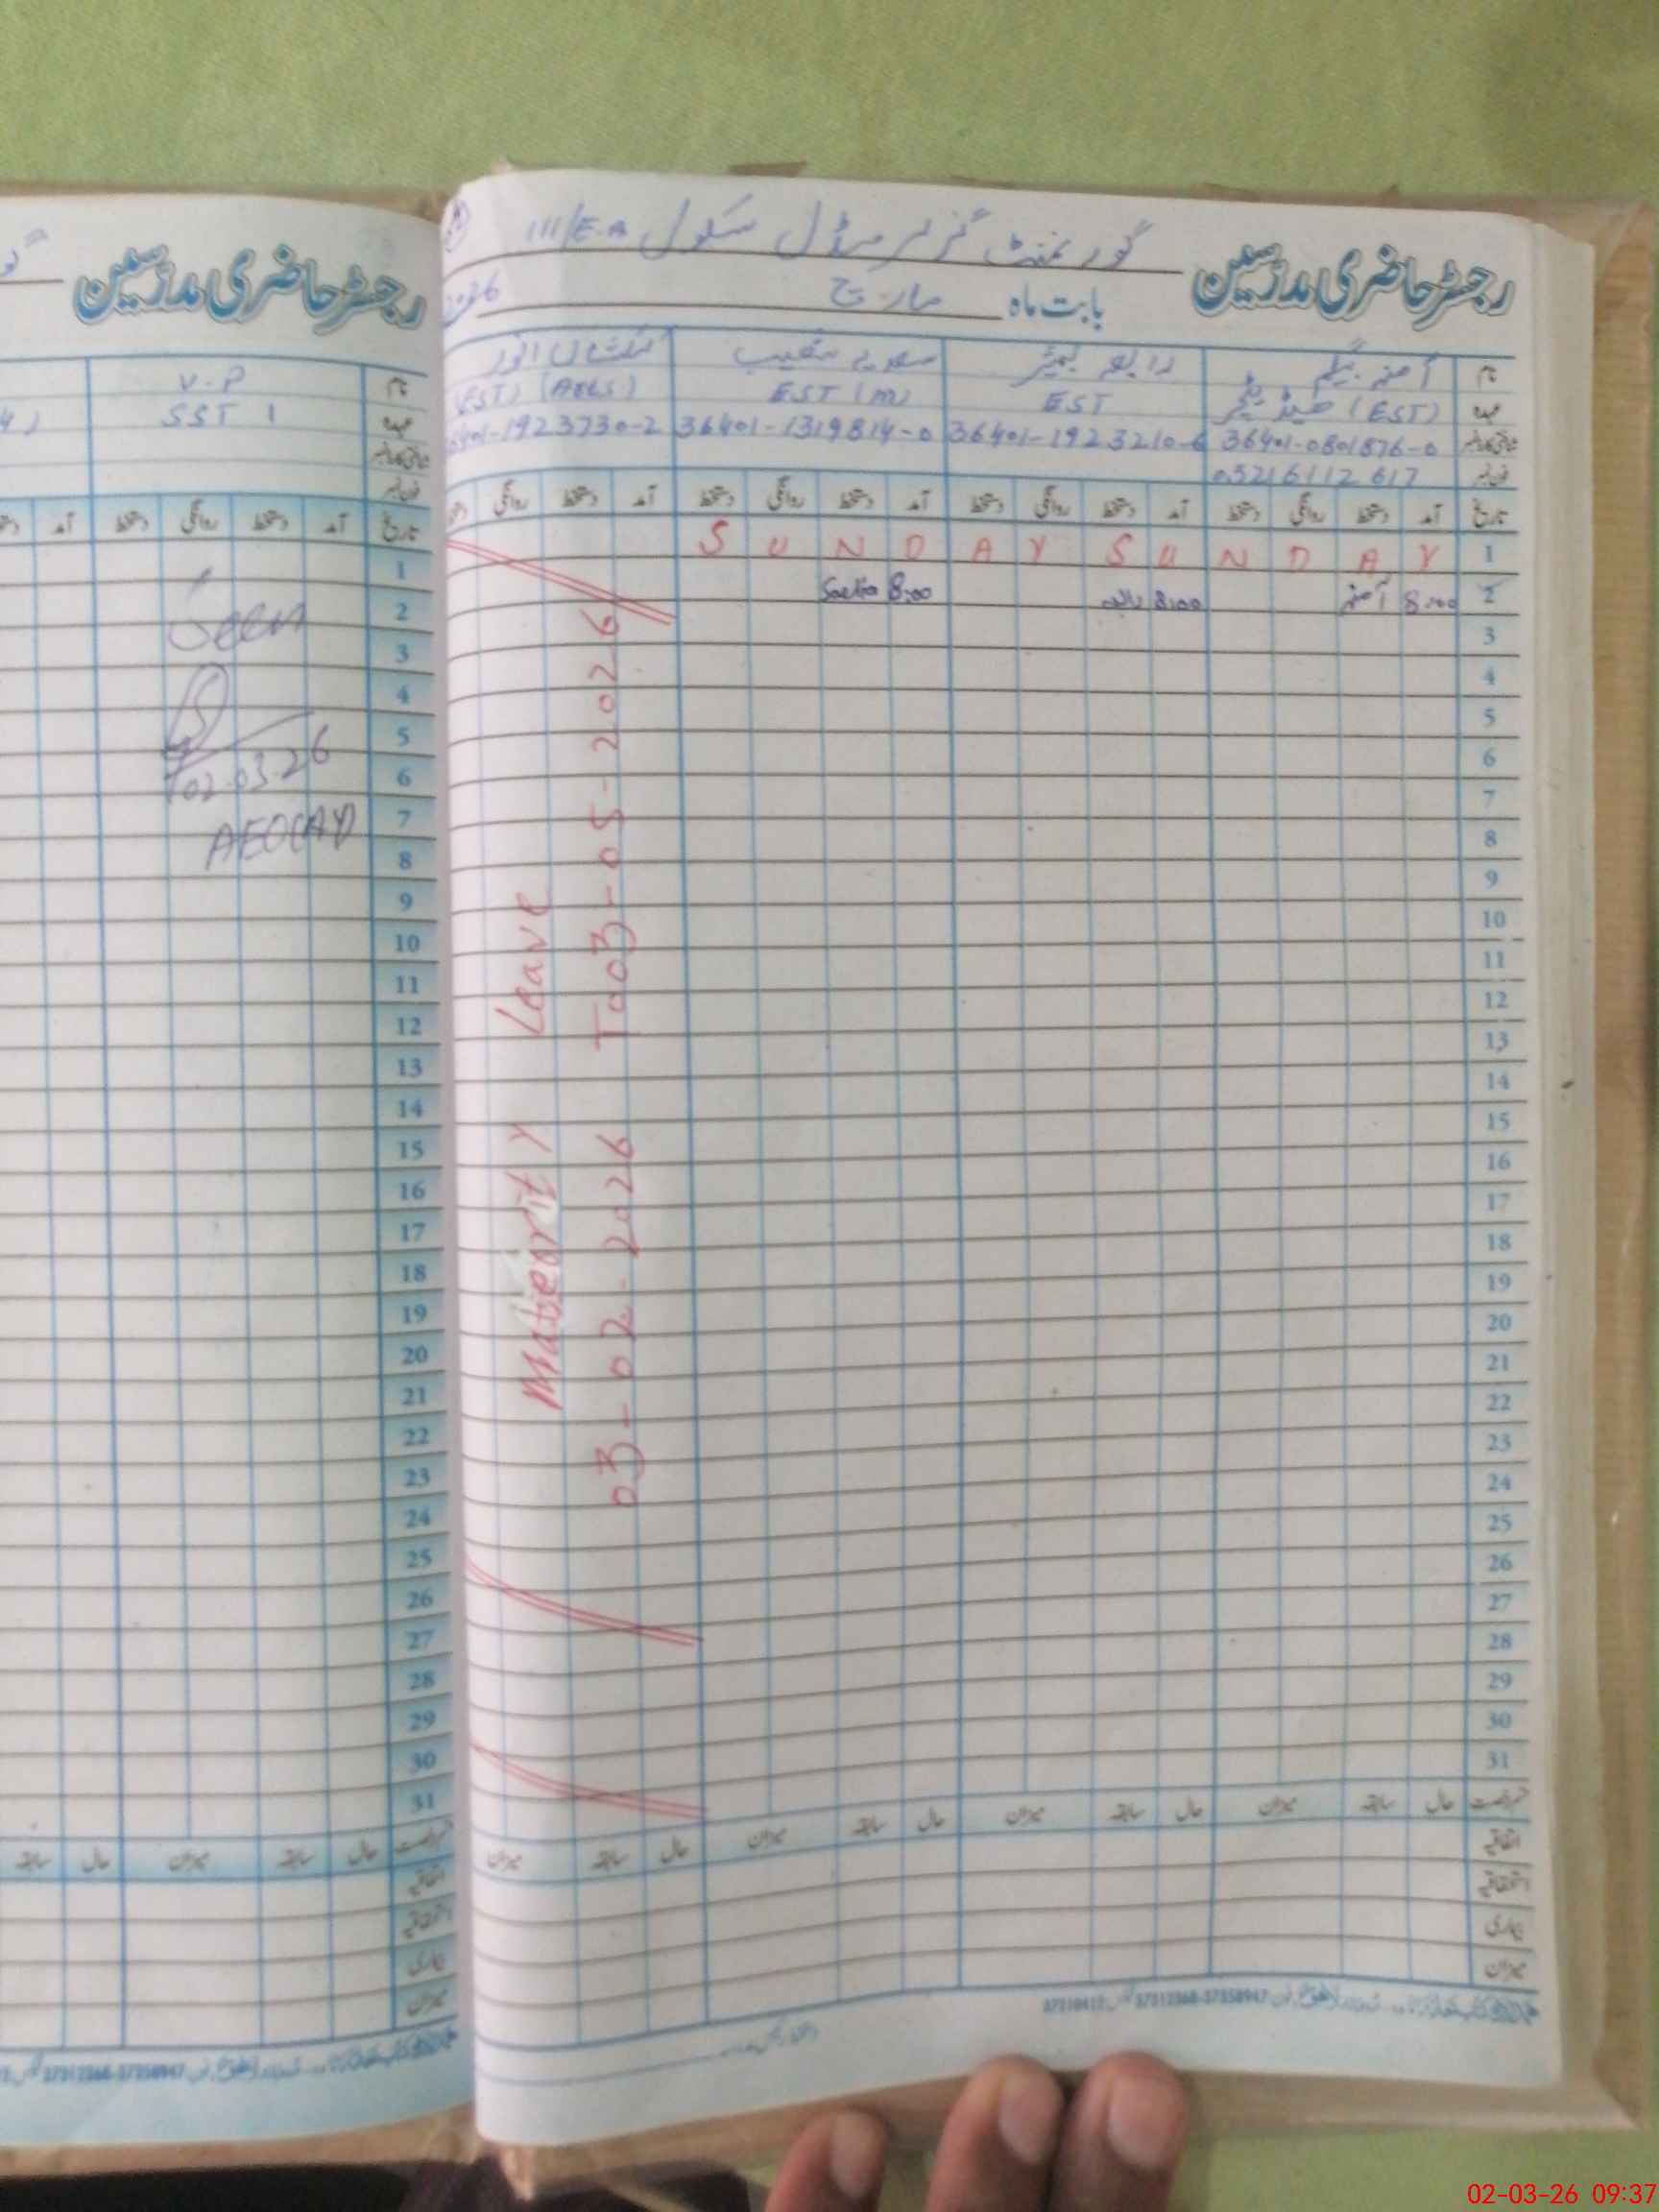 رجسٹر حاضری مدرسین
گورنمنٹ گرلز مڈل سکول 111/E.B
بابت ماہ مارچ 2026
نام آمنہ بیگم
عہدہ (EST) ہیڈ ٹیچر EST EST (M) (EST) (Arts)
36401-0801876-0 36401-1923210-6 36401-1319814-0 36401-1923730-2
03216112617
تاریخ آمد دستخط روانگی دستخط آمد دستخط روانگی دستخط آمد دستخط روانگی دستخط آمد دستخط روانگی
1 S U N D A Y S U N D A Y
2 8:00 آمنہ 8:00 رابعہ 8:00 Sadia
3
4
5
6
7
8
9
10
11
12
13
14
15
16
17
18
19
20
21
22
23
24
25
26
27
28
29
30
31
Maternity Leave
03-02-2026 To 03-05-2026
حال سابقہ میزان حال سابقہ میزان حال سابقہ میزان حال سابقہ میزان
اتفاقیہ
استحقاقیہ
بیماری
میزان
رجسٹر حاضری مدرسین
نام V-P
عہدہ SST 1
تاریخ آمد دستخط روانگی دستخط آمد
1
2
3
4
5
6
7
8
9
10
11
12
13
14
15
16
17
18
19
20
21
22
23
24
25
26
27
28
29
30
31
Seen
02-03-26
حال سابقہ میزان حال سابقہ
اتفاقیہ
استحقاقیہ
بیماری
میزان
02-03-26 09:37